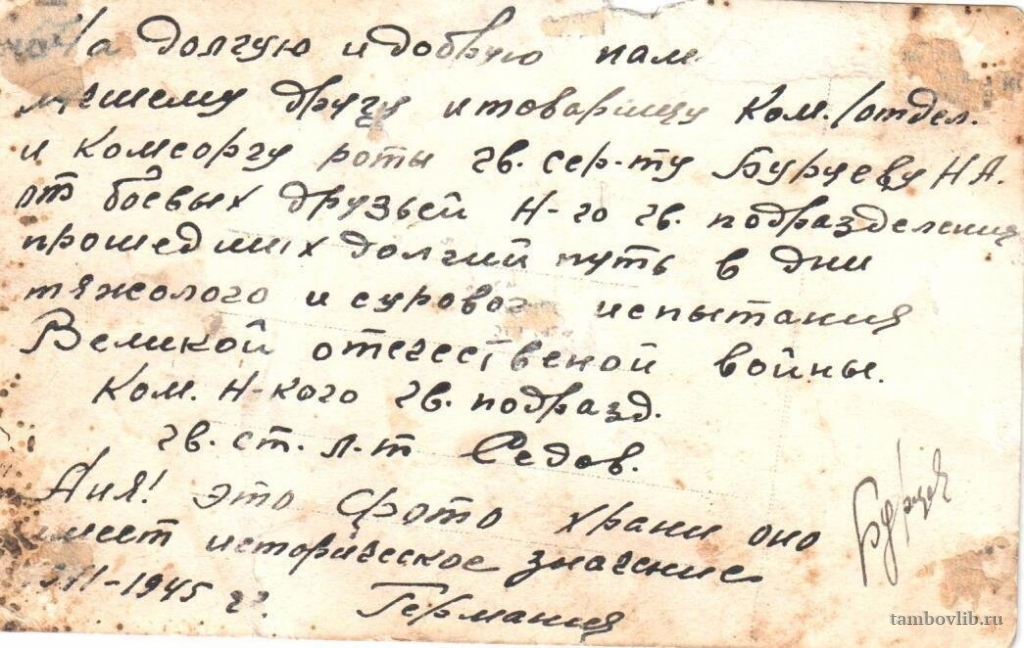 На долгую и добрую пам
лучшему другу и товарищу Ком./отдел.
и комсоргу роты гв. сер-ту Бурцеву Н А.
от боевых друзьей Н-го гв. подразделения
прошедших долгий путь в дни
тяжолого и сурового испытания
Великой отечественой войны.
Ком. Н-кого гв. подразд.
гв. ст. л-т Седов.
Аня! это фото храни оно
имеет историческое значение
1945 г. Германия
Бурцев
tambovlib.ru